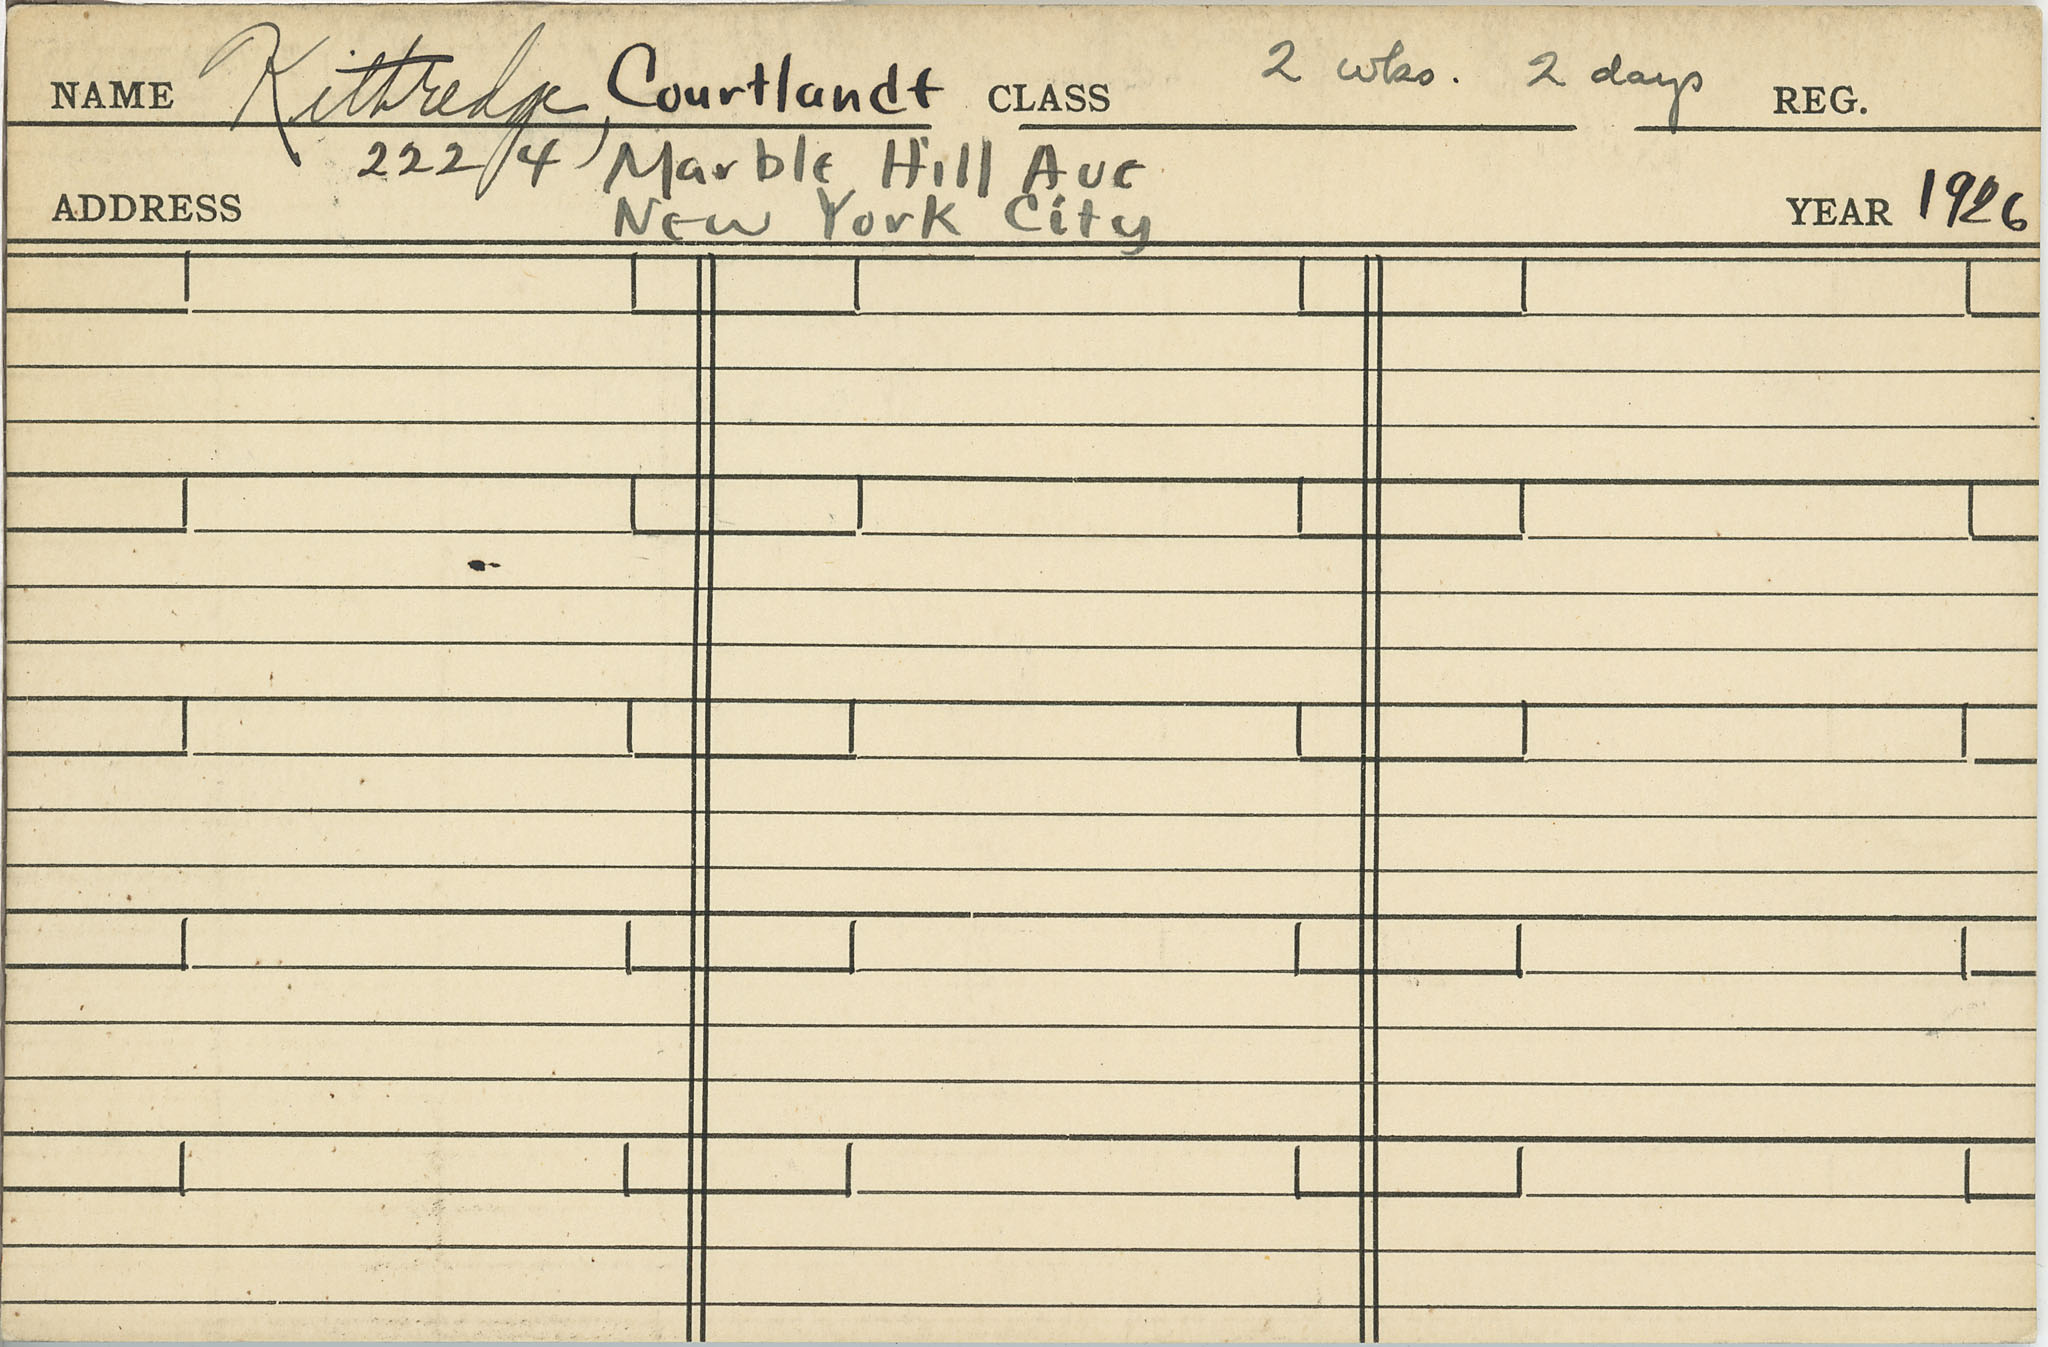 NAME Kittredge, Courtlandt CLASS 2 wks. 2 days REG.
2224 Marble Hill Ave
ADDRESS New York City YEAR 1926